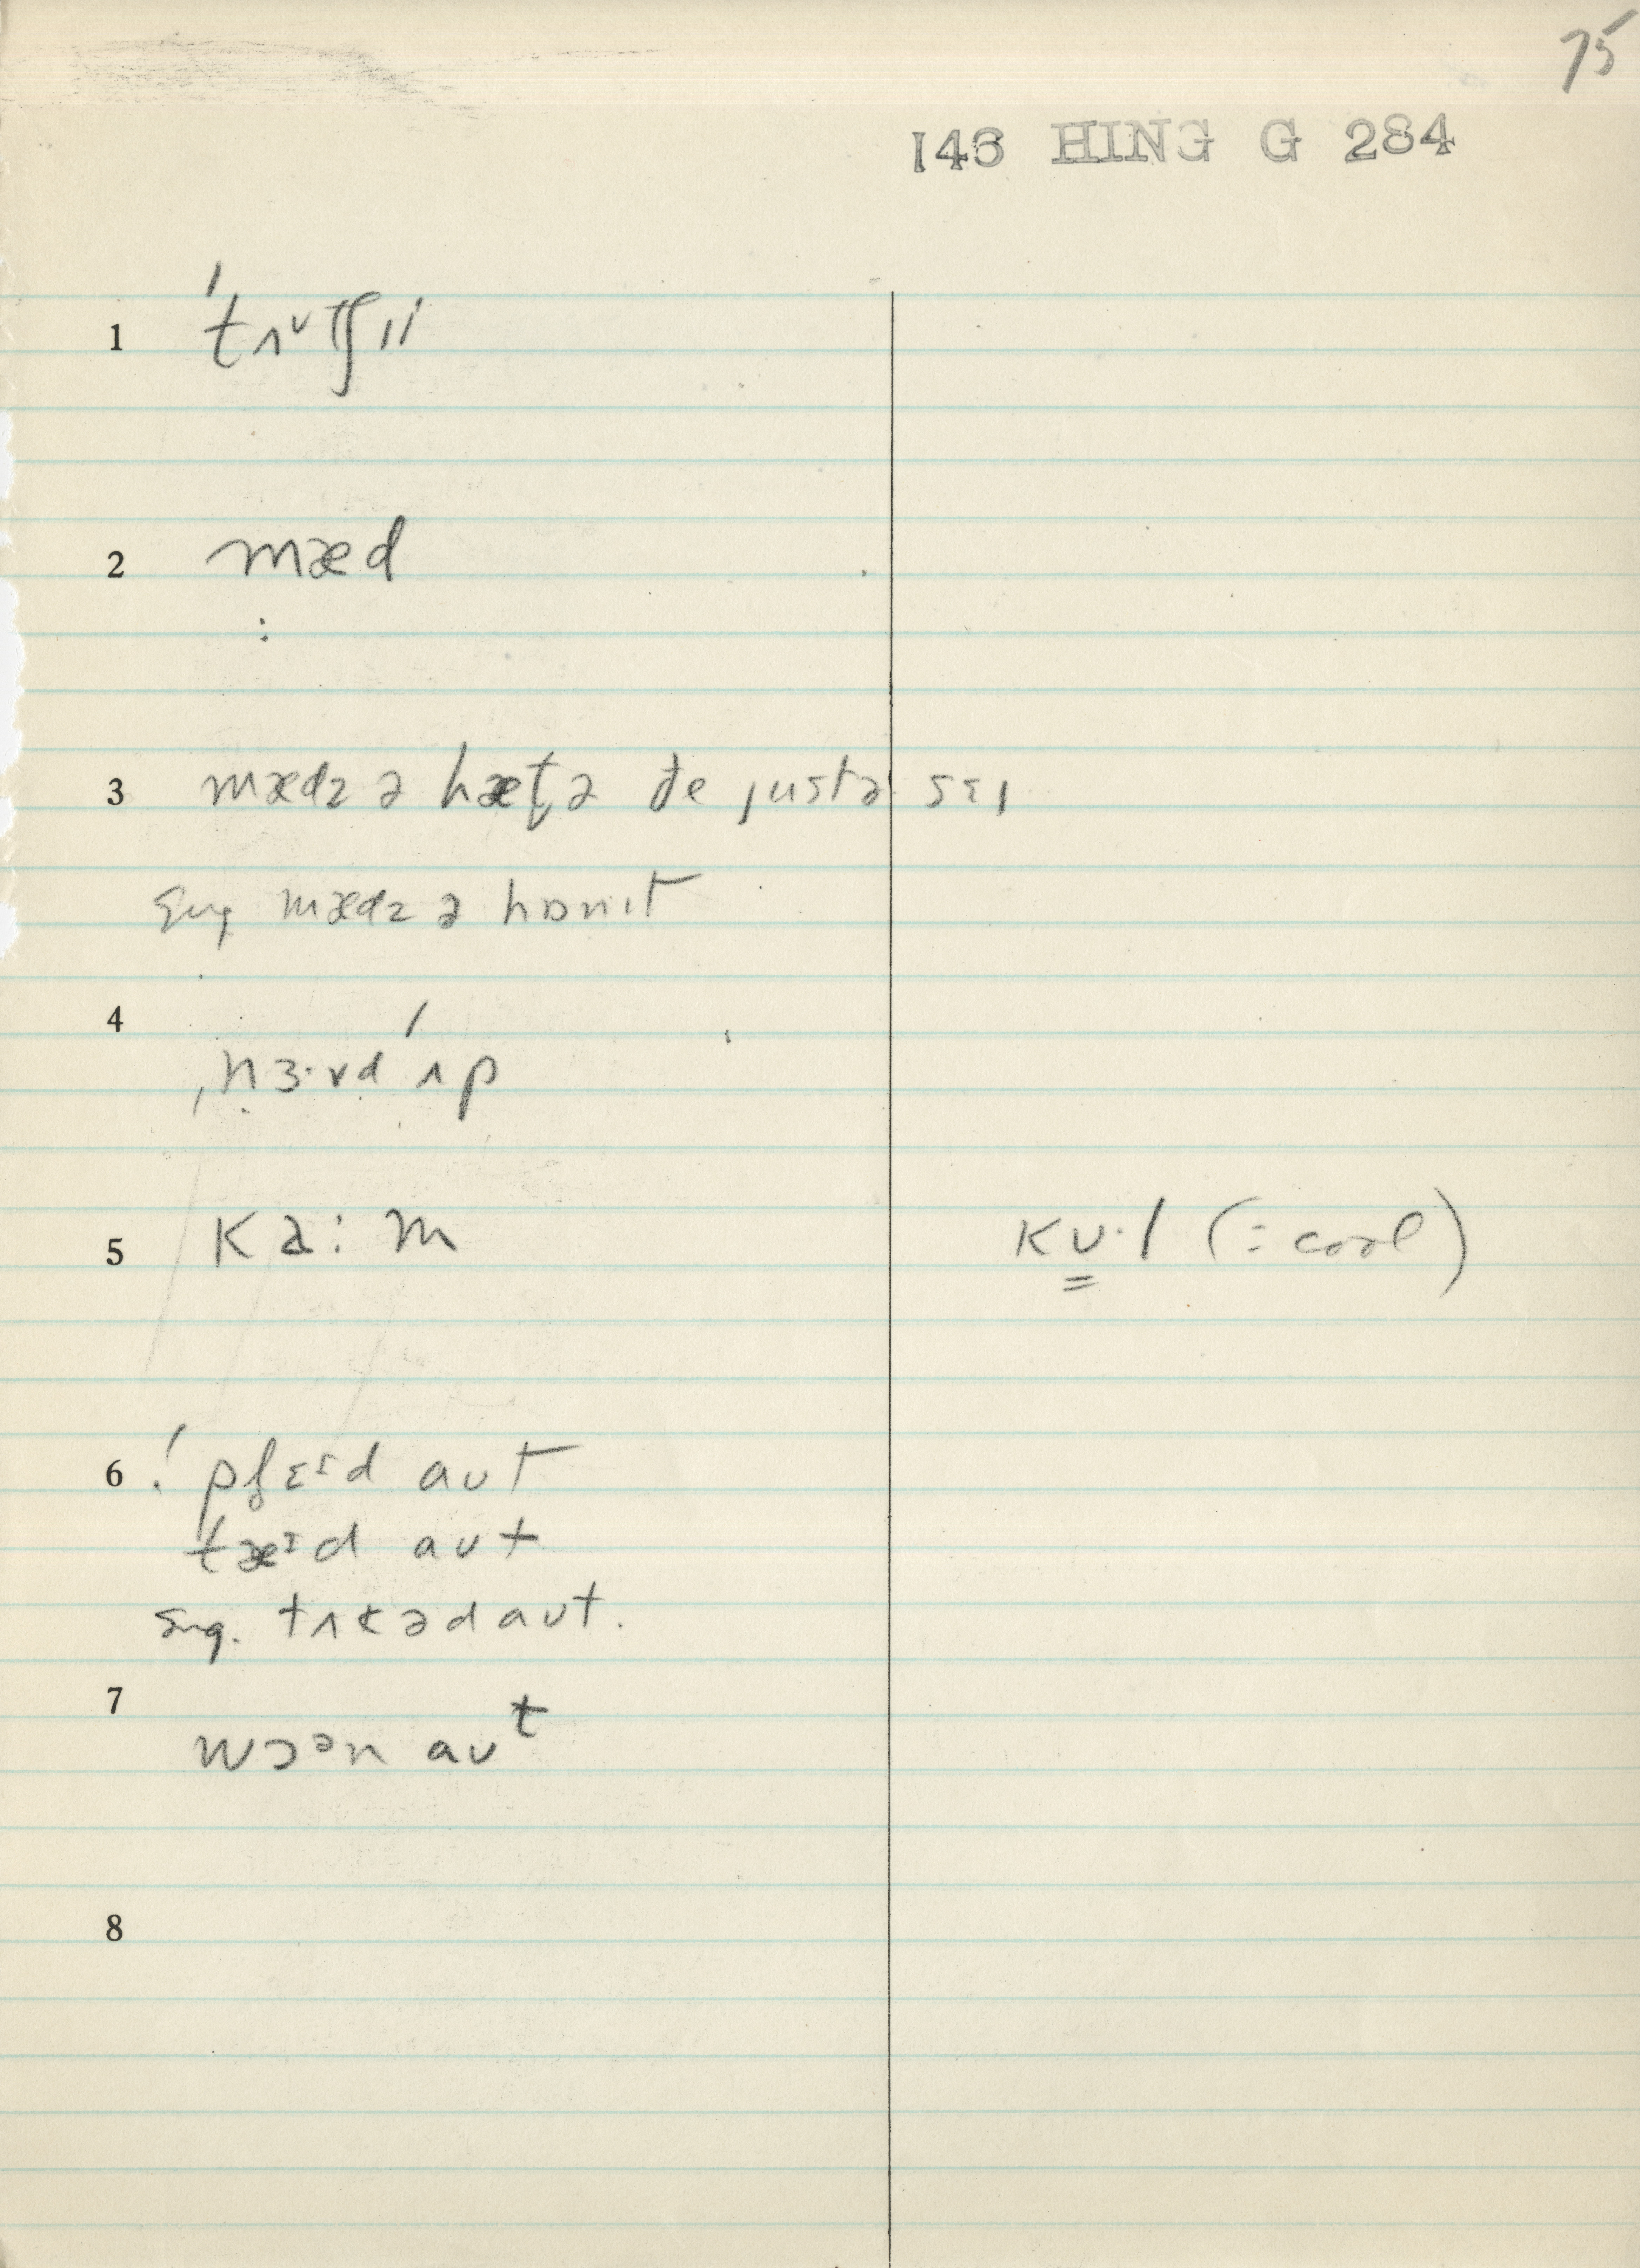 75
146 HING G 284
1 ˈtʌᵛtʃɪi
2 mæd
:
3 mædz ə hæt̬ə ðe justə sɛɪ
Sug mædz ə hɒnɪt
4
ˌnɜ·vd ˈʌp
5 ka:m kᴜ·l (:cool)
6 ! pleɪd aut
tæɪd aut
Sug. tʌkəd aut.
7
wɔᵊn auᵗ
8